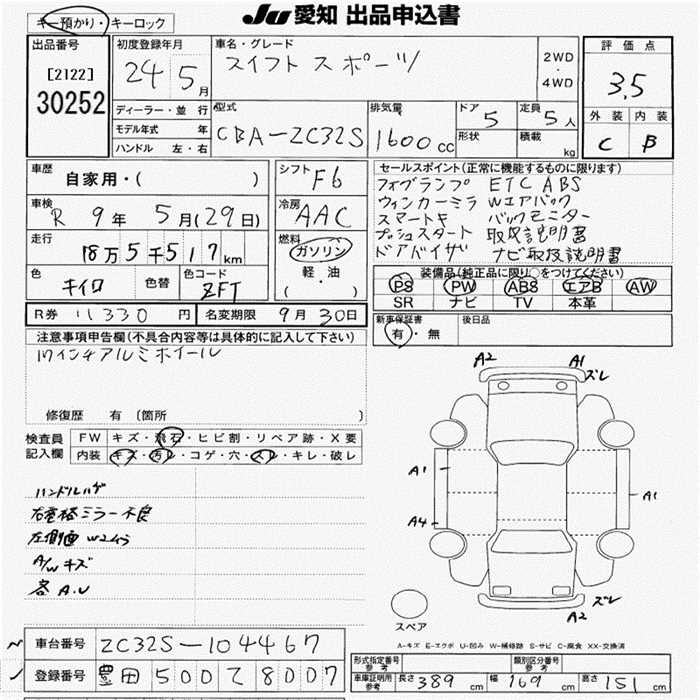 Ju 愛知 出品申込書
キー預かり・キーロック
出品番号
[2122]
30252
初度登録年月
24 5月
車名・グレード
スイフト スポーツ
2WD
・
4WD
評価点
3.5
外装 内装
C B
ディーラー・並 行
モデル年式 年
ハンドル 左・右
型式
CBA-ZC32S
排気量
1600cc
ドア
5
形状
定員
5人
積載
kg
車歴
自家用・( )
車検
R 9年 5月(29日)
走行
18万5千517km
色
キイロ
色替
色コード
ZFT
シフト
F6
冷房
AAC
燃料
ガソリン
・
軽・油
( )
セールスポイント(正常に機能するものに限ります)
フォグランプ ETC ABS
ウィンカーミラ Wエアバック
スマートキ バックモニター
プッシュスタート 取扱説明書
ドアバイザ ナビ取扱説明書
装備品(純正品に限り○をつけてください)
PS PW ABS エアB AW
SR ナビ TV 本革
R券 11330 円 名変期限 9月30日
新車保証書
有・無
後日品
注意事項申告欄(不具合内容等は具体的に記入して下さい)
17インチアルミホイール
修復歴 有 〔箇所 〕
検査員
記入欄
FW キズ・飛石・ヒビ割・リペア跡・X要
内装 キズ・汚レ・コゲ・穴・スレ・キレ・破レ
ハンドルハゲ
右電格ミラー不良
左側面
A/Wキズ
各 A.U
A2 A1 ズレ
A1
A1
A4
ズレ
A2
スペア
A-キズ E-エクボ U-凹み W-補修跡 S-サビ C-腐食 XX-交換済
車台番号 ZC32S-104467
登録番号 豊田 500 て 8007
形式指定番号
参考
類別区分番号
参考
車庫証明用
参考
長さ 389 cm 幅 169 cm 高さ 151 cm